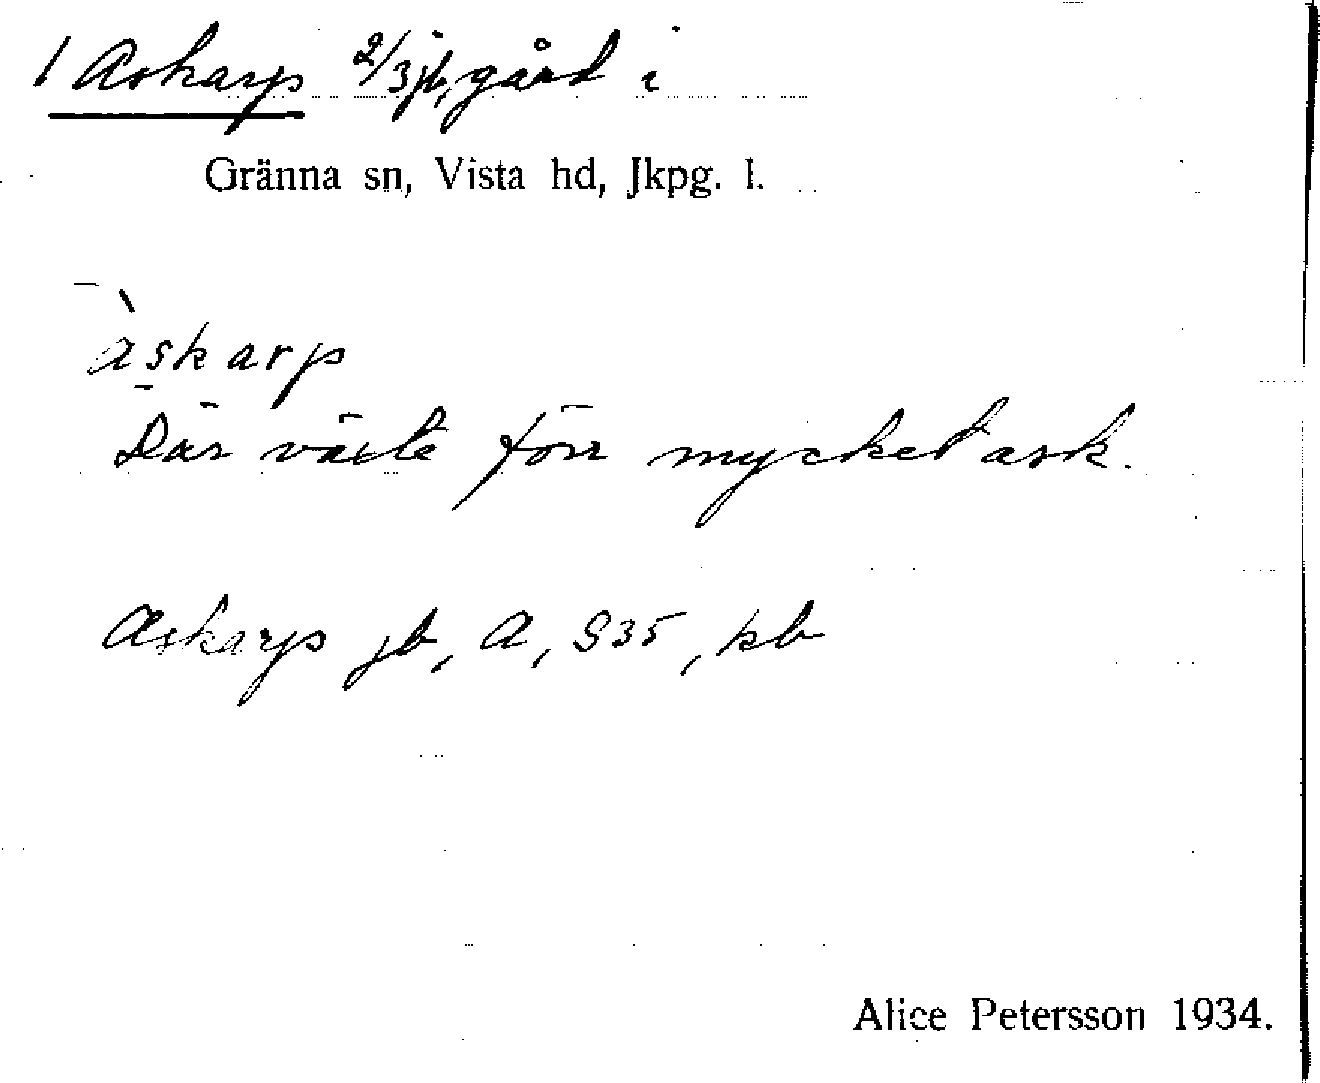 1 Askarp 2/3 jb, gård i
Gränna sn, Vista hd, Jkpg. l.
àskarp
Där växte förr mycket ask.
Askarp jb, A, S35, kb
Alice Petersson 1934.